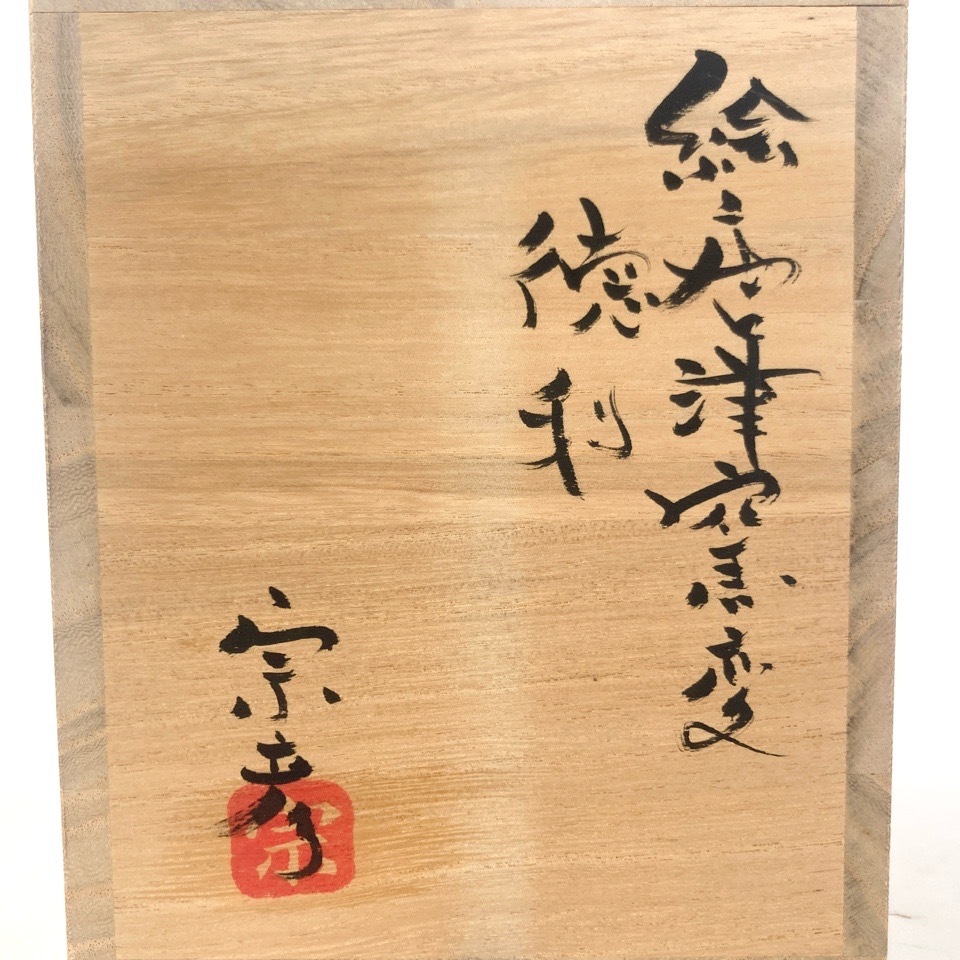 絵唐津窯変
徳利
宗
宗